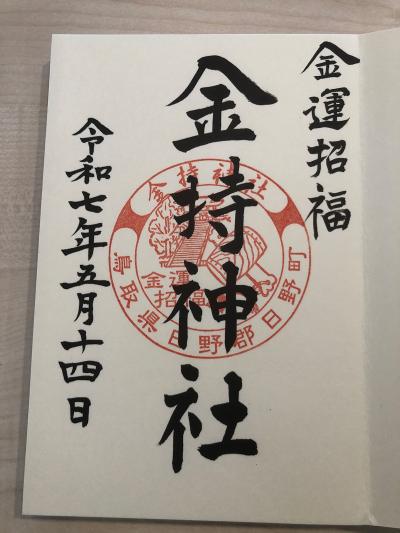 金運招福
金持神社
令和七年五月十四日
金持神社
金運
招福
鳥取県日野郡日野町